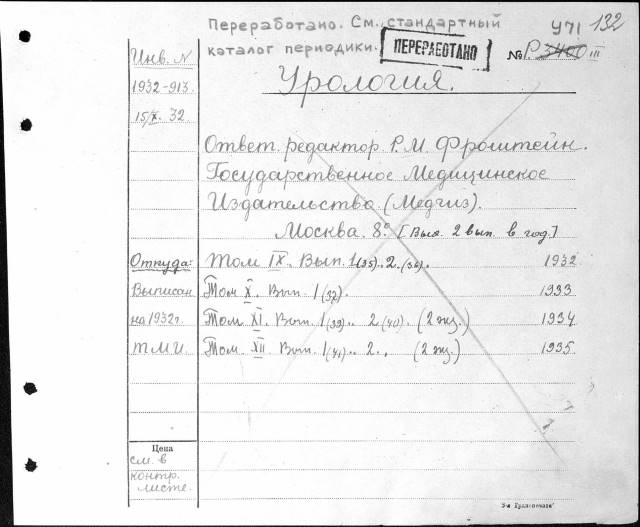 Переработано. См. стандартный У71 132
каталог периодики. ПЕРЕРАБОТАНО № Р. 3400 III
Инв. N
Урология.
1932-913.
15/X. 32
Ответ. редактор Р.М. Фронштейн.
Государственное Медицинское
Издательство. (Медгиз).
Москва. 8° [Вых. 2 вып. в год.]
Откуда: Том IX. Вып. 1(35).. 2.(36). 1932
Выписан Том X. Вып. 1(37). 1933
на 1932 г. Том XI. Вып. 1(39).. 2(40). (2 экз.) 1934
Т.М.И. Том. XII. Вып. 1(41).. 2.. (2 экз.) 1935
Цена
см. в
контр.
листе.